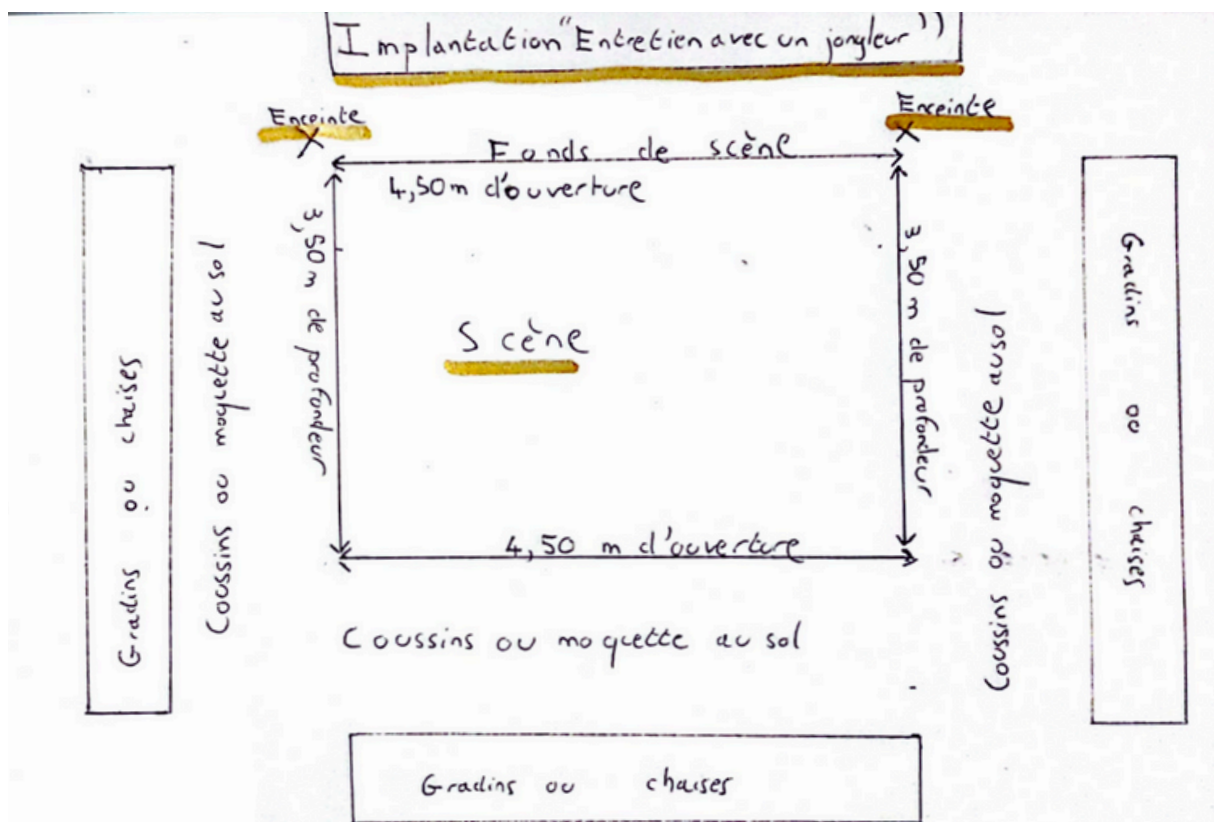 Implantation "Entretien avec un jongleur"
Enceinte
Enceinte
Fonds de scène
4,50m d'ouverture
3,50m de profondeur
3,50m de profondeur
Gradins ou chaises
Coussins ou moquette au sol
Scène
Coussins ou moquette au sol
Gradins ou chaises
4,50 m d'ouverture
Coussins ou moquette au sol
Gradins ou chaises